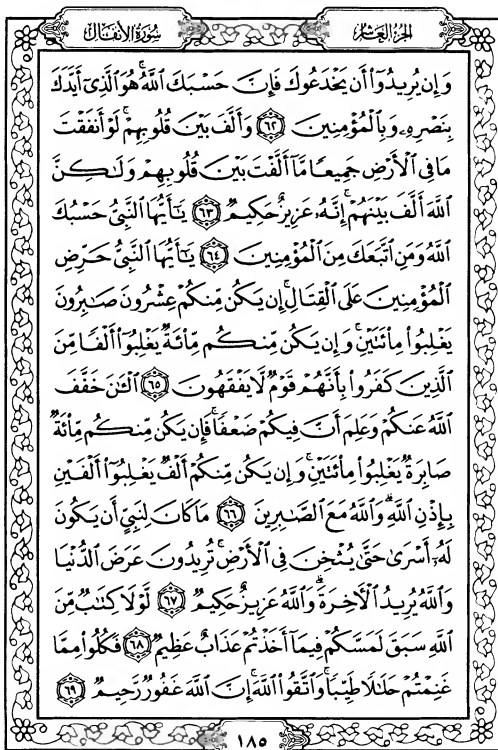 سُورَةُ الأَنفَالِ الجُزءُ العَاشِر
وَإِن يُرِيدُوٓا۟ أَن يَخْدَعُوكَ فَإِنَّ حَسْبَكَ ٱللَّهُ ۚ هُوَ ٱلَّذِىٓ أَيَّدَكَ
بِنَصْرِهِۦ وَبِٱلْمُؤْمِنِينَ ﴿٦٢﴾ وَأَلَّفَ بَيْنَ قُلُوبِهِمْ ۚ لَوْ أَنفَقْتَ
مَا فِى ٱلْأَرْضِ جَمِيعًا مَّآ أَلَّفْتَ بَيْنَ قُلُوبِهِمْ وَلَـٰكِنَّ
ٱللَّهَ أَلَّفَ بَيْنَهُمْ ۚ إِنَّهُۥ عَزِيزٌ حَكِيمٌ ﴿٦٣﴾ يَـٰٓأَيُّهَا ٱلنَّبِىُّ حَسْبُكَ
ٱللَّهُ وَمَنِ ٱتَّبَعَكَ مِنَ ٱلْمُؤْمِنِينَ ﴿٦٤﴾ يَـٰٓأَيُّهَا ٱلنَّبِىُّ حَرِّضِ
ٱلْمُؤْمِنِينَ عَلَى ٱلْقِتَالِ ۚ إِن يَكُن مِّنكُمْ عِشْرُونَ صَـٰبِرُونَ
يَغْلِبُوا۟ مِا۟ئَتَيْنِ ۚ وَإِن يَكُن مِّنكُم مِّا۟ئَةٌ يَغْلِبُوٓا۟ أَلْفًا مِّنَ
ٱلَّذِينَ كَفَرُوا۟ بِأَنَّهُمْ قَوْمٌ لَّا يَفْقَهُونَ ﴿٦٥﴾ ٱلْـَٔـٰنَ خَفَّفَ
ٱللَّهُ عَنكُمْ وَعَلِمَ أَنَّ فِيكُمْ ضَعْفًا ۚ فَإِن يَكُن مِّنكُم مِّا۟ئَةٌ
صَابِرَةٌ يَغْلِبُوا۟ مِا۟ئَتَيْنِ ۚ وَإِن يَكُن مِّنكُمْ أَلْفٌ يَغْلِبُوٓا۟ أَلْفَيْنِ
بِإِذْنِ ٱللَّهِ ۗ وَٱللَّهُ مَعَ ٱلصَّـٰبِرِينَ ﴿٦٦﴾ مَا كَانَ لِنَبِىٍّ أَن يَكُونَ
لَهُۥٓ أَسْرَىٰ حَتَّىٰ يُثْخِنَ فِى ٱلْأَرْضِ ۚ تُرِيدُونَ عَرَضَ ٱلدُّنْيَا
وَٱللَّهُ يُرِيدُ ٱلْـَٔاخِرَةَ ۗ وَٱللَّهُ عَزِيزٌ حَكِيمٌ ﴿٦٧﴾ لَّوْلَا كِتَـٰبٌ مِّنَ
ٱللَّهِ سَبَقَ لَمَسَّكُمْ فِيمَآ أَخَذْتُمْ عَذَابٌ عَظِيمٌ ﴿٦٨﴾ فَكُلُوا۟ مِمَّا
غَنِمْتُمْ حَلَـٰلًا طَيِّبًا ۚ وَٱتَّقُوا۟ ٱللَّهَ ۚ إِنَّ ٱللَّهَ غَفُورٌ رَّحِيمٌ ﴿٦٩﴾
١٨٥